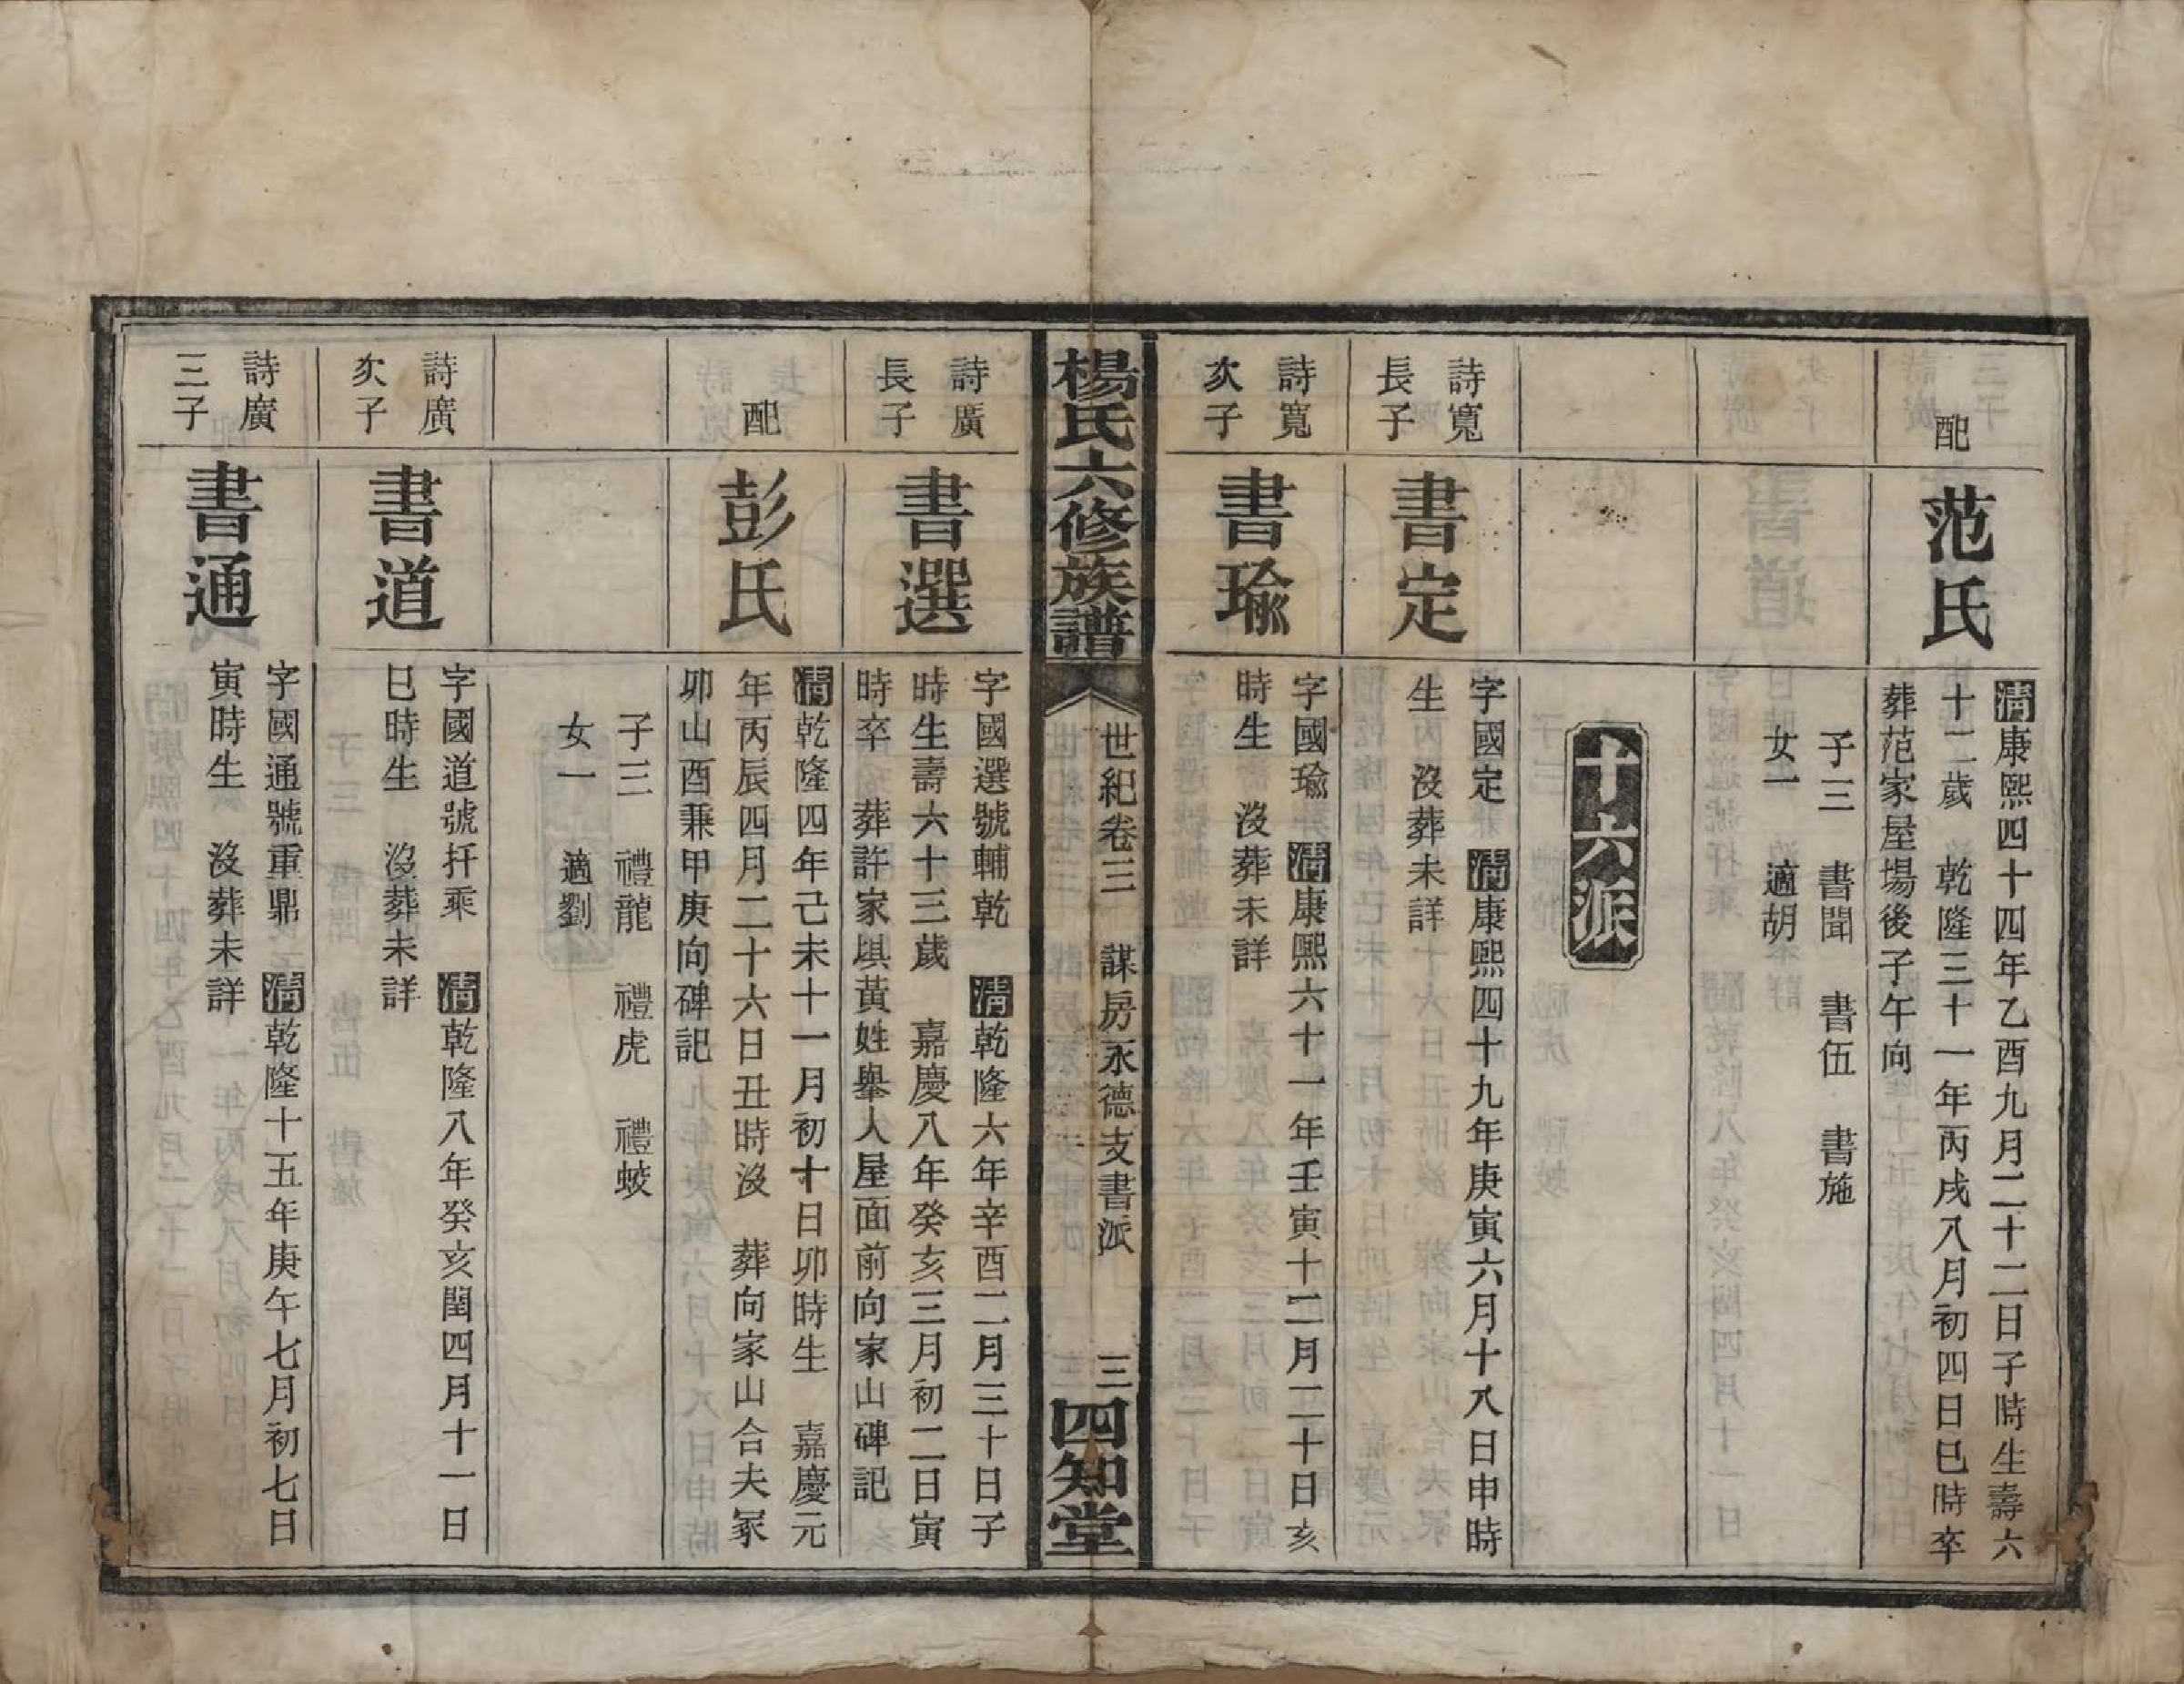 配
范氏
清康熙四十四年乙酉九月二十二日子時生壽六
十二歲　乾隆三十一年丙戌八月初四日巳時卒
葬范家屋場後子午向
子三　書聞　書伍　書施
女一　適胡
十六派
詩寬
長子
書定
字國定　清康熙四十九年庚寅六月十八日申時
生　沒葬未詳
詩寬
次子
書瑜
字國瑜　清康熙六十一年壬寅十二月二十日亥
時生　沒葬未詳
楊氏六修族譜
世紀卷三　謀房永德支書派
三
四知堂
詩廣
長子
書選
字國選號輔乾　清乾隆六年辛酉二月三十日子
時生壽六十三歲　嘉慶八年癸亥三月初二日寅
時卒　葬許家塤黃姓舉人屋面前向家山碑記
配
彭氏
清乾隆四年己未十一月初十日卯時生　嘉慶元
年丙辰四月二十六日丑時沒　葬向家山合夫冢
卯山酉兼甲庚向碑記
子三　禮龍　禮虎　禮蛟
女一　適劉
詩廣
次子
書道
字國道號扞乘　清乾隆八年癸亥閏四月十一日
巳時生　沒葬未詳
詩廣
三子
書通
字國通號重鼎　清乾隆十五年庚午七月初七日
寅時生　沒葬未詳